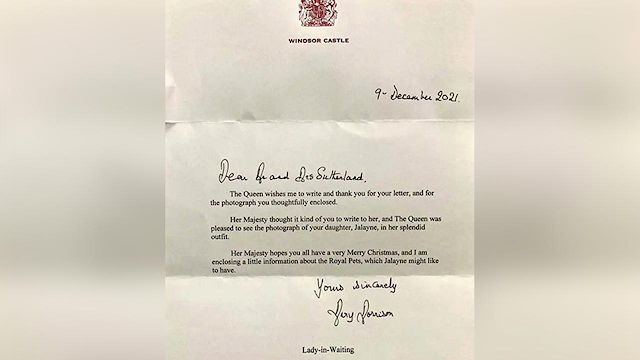 WINDSOR CASTLE
9th December 2021.
Dear Mr and Mrs Sutherland,
The Queen wishes me to write and thank you for your letter, and for
the photograph you thoughtfully enclosed.
Her Majesty thought it kind of you to write to her, and The Queen was
pleased to see the photograph of your daughter, Jalayne, in her splendid
outfit.
Her Majesty hopes you all have a very Merry Christmas, and I am
enclosing a little information about the Royal Pets, which Jalayne might like
to have.
Yours sincerely
Morrison
Lady-in-Waiting